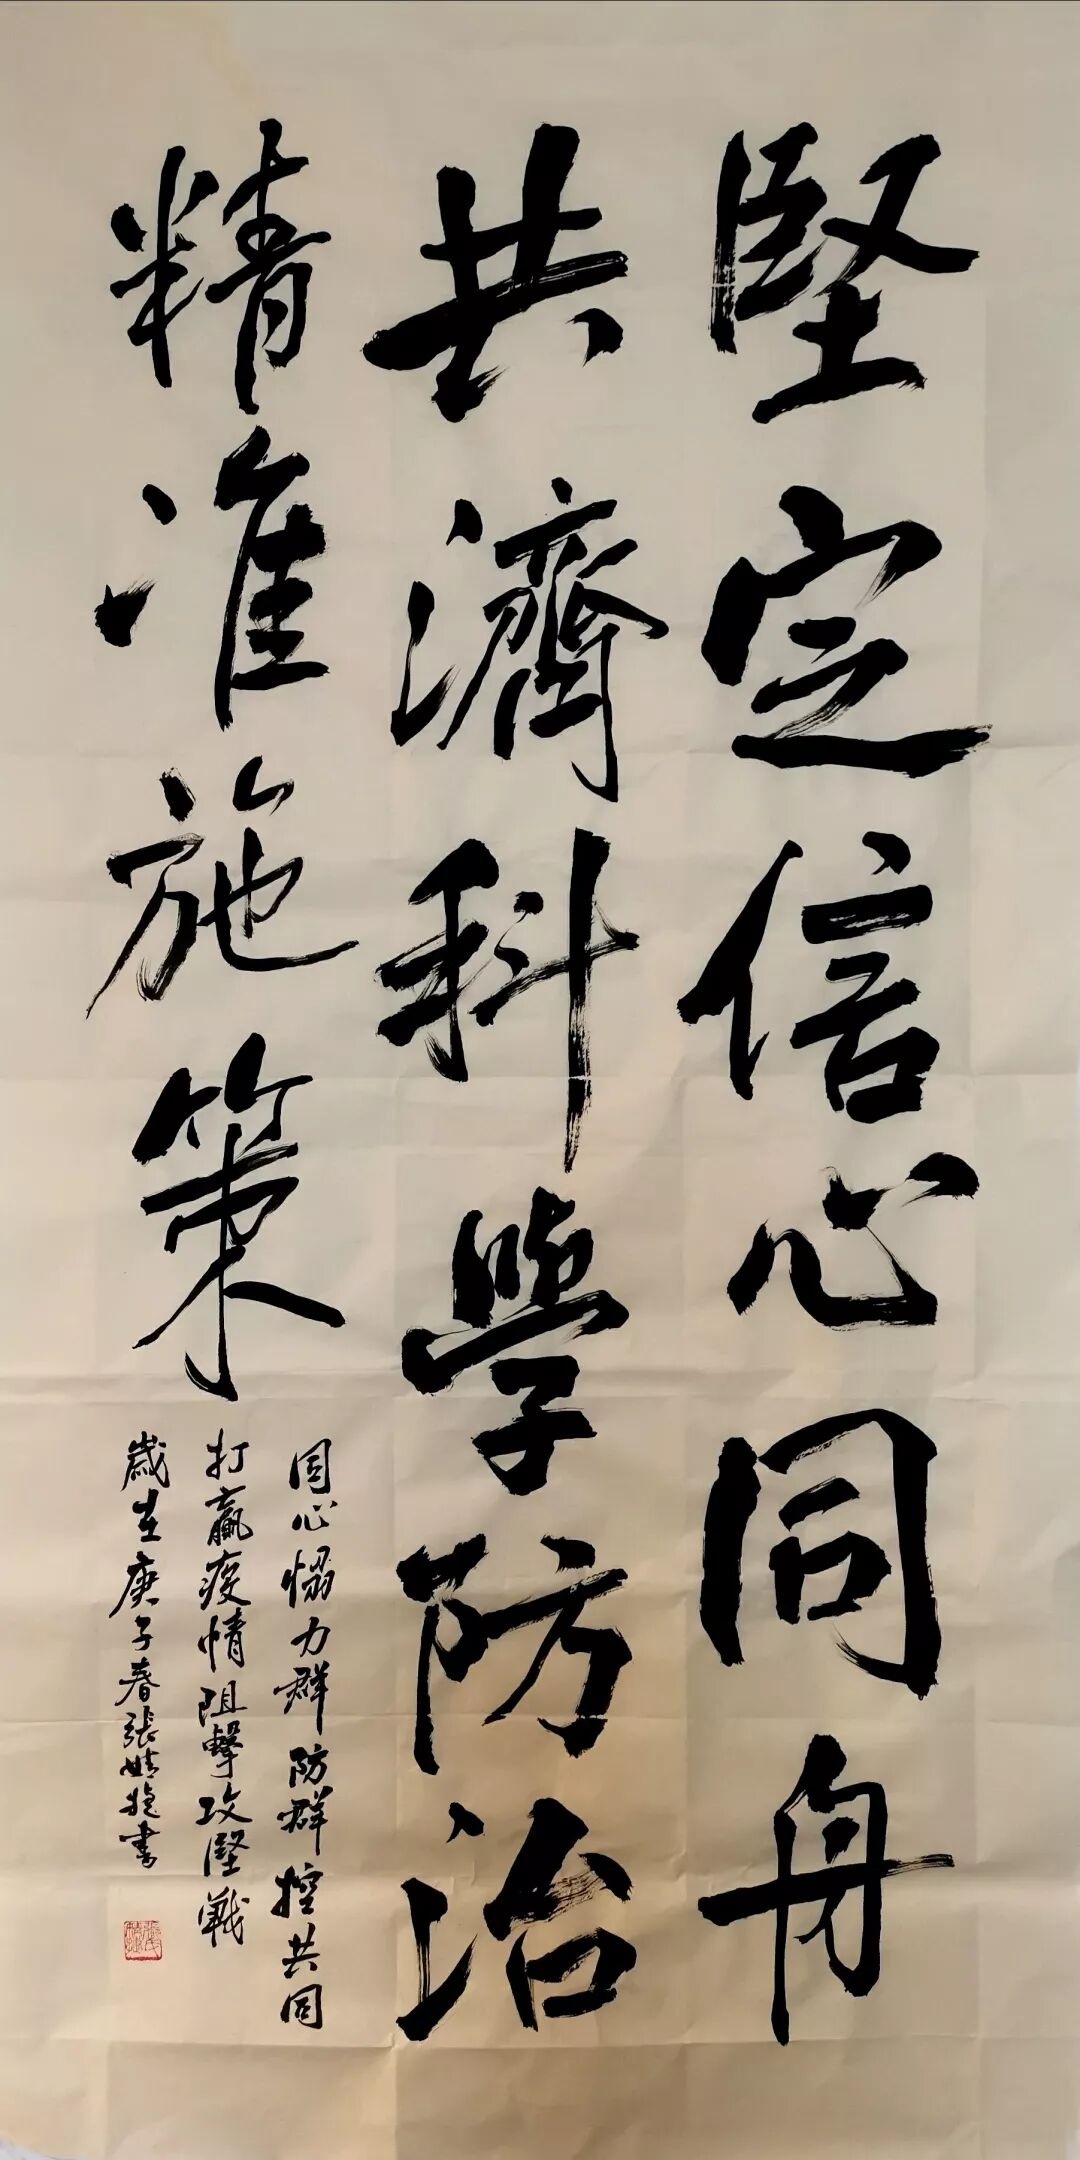 堅定信心同舟
共濟科學防治
精准施策
同心惱力群防群控共同
打贏疫情阻擊攻堅戰
歲在庚子春張婧婉書